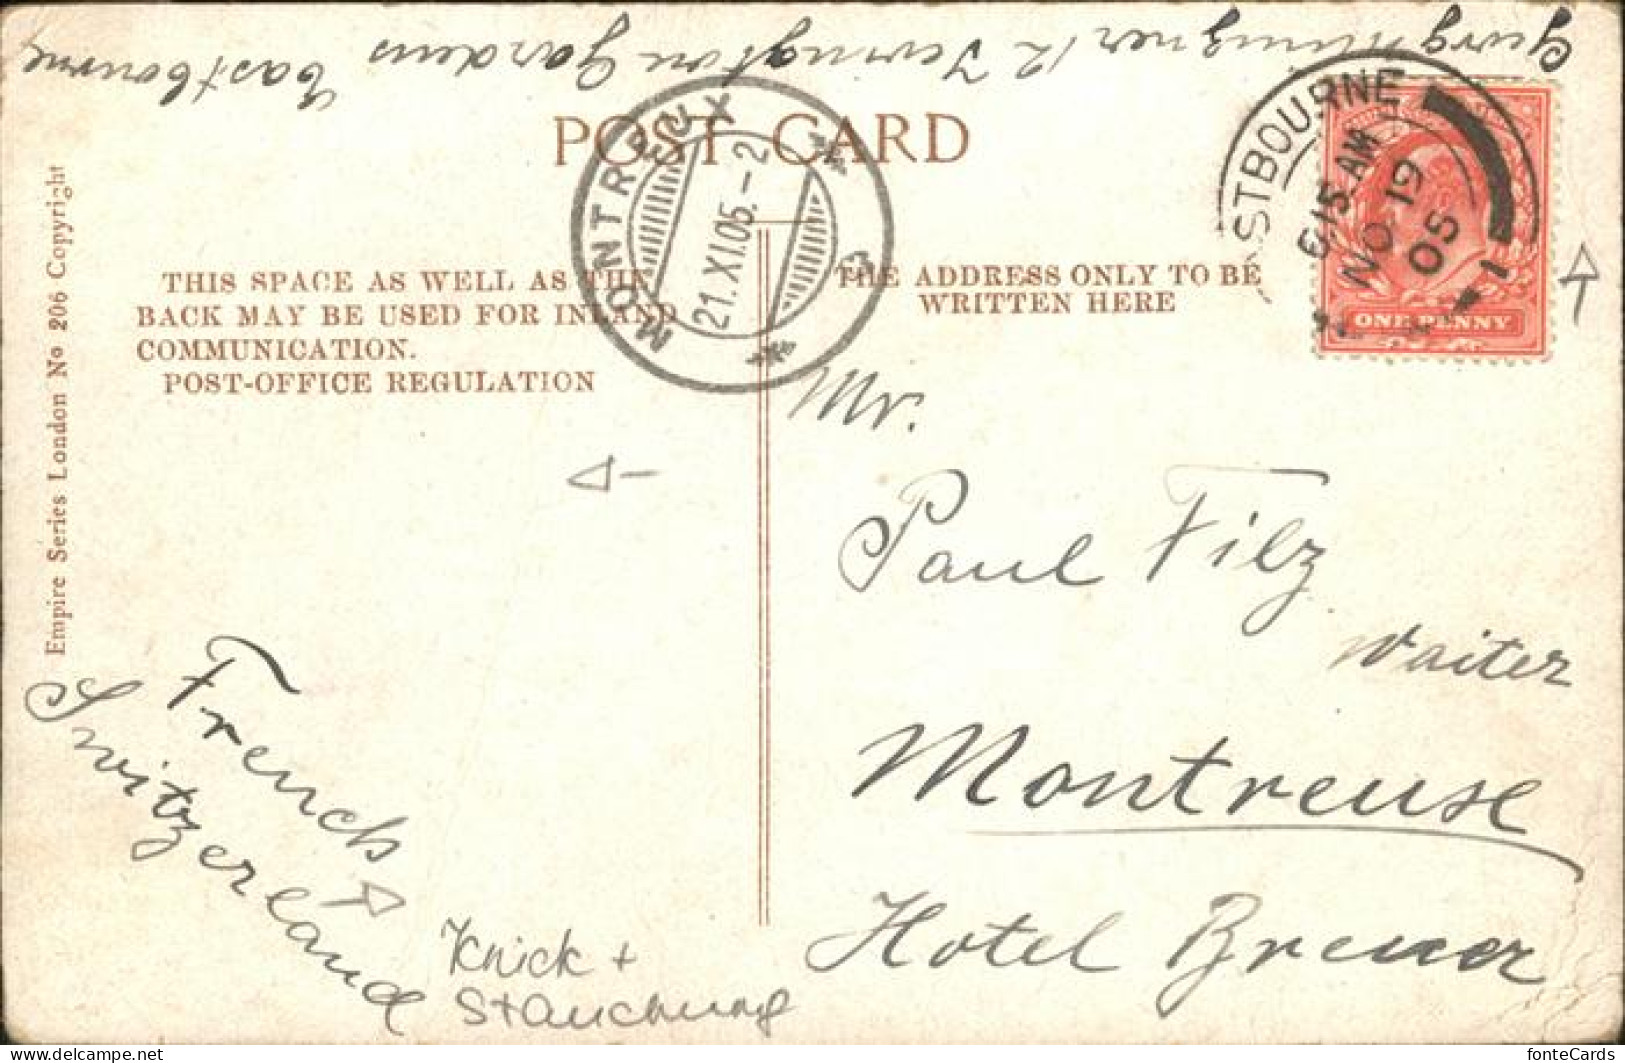 12 Jevington Gardens Eastbourne
POST CARD
MONTREUX
21.XI.05.-2
EASTBOURNE
6 15 AM
NO 19
05
1
ONE PENNY
THIS SPACE AS WELL AS THE
BACK MAY BE USED FOR INLAND
COMMUNICATION.
POST-OFFICE REGULATION
THE ADDRESS ONLY TO BE
WRITTEN HERE
Empire Series London No 206 Copyright
Mr.
Paul Filz
Waiter
Montreuse
Hotel Breuer
French
Switzerland
Knick +
Stauchung
delcampe.net
fonteCards